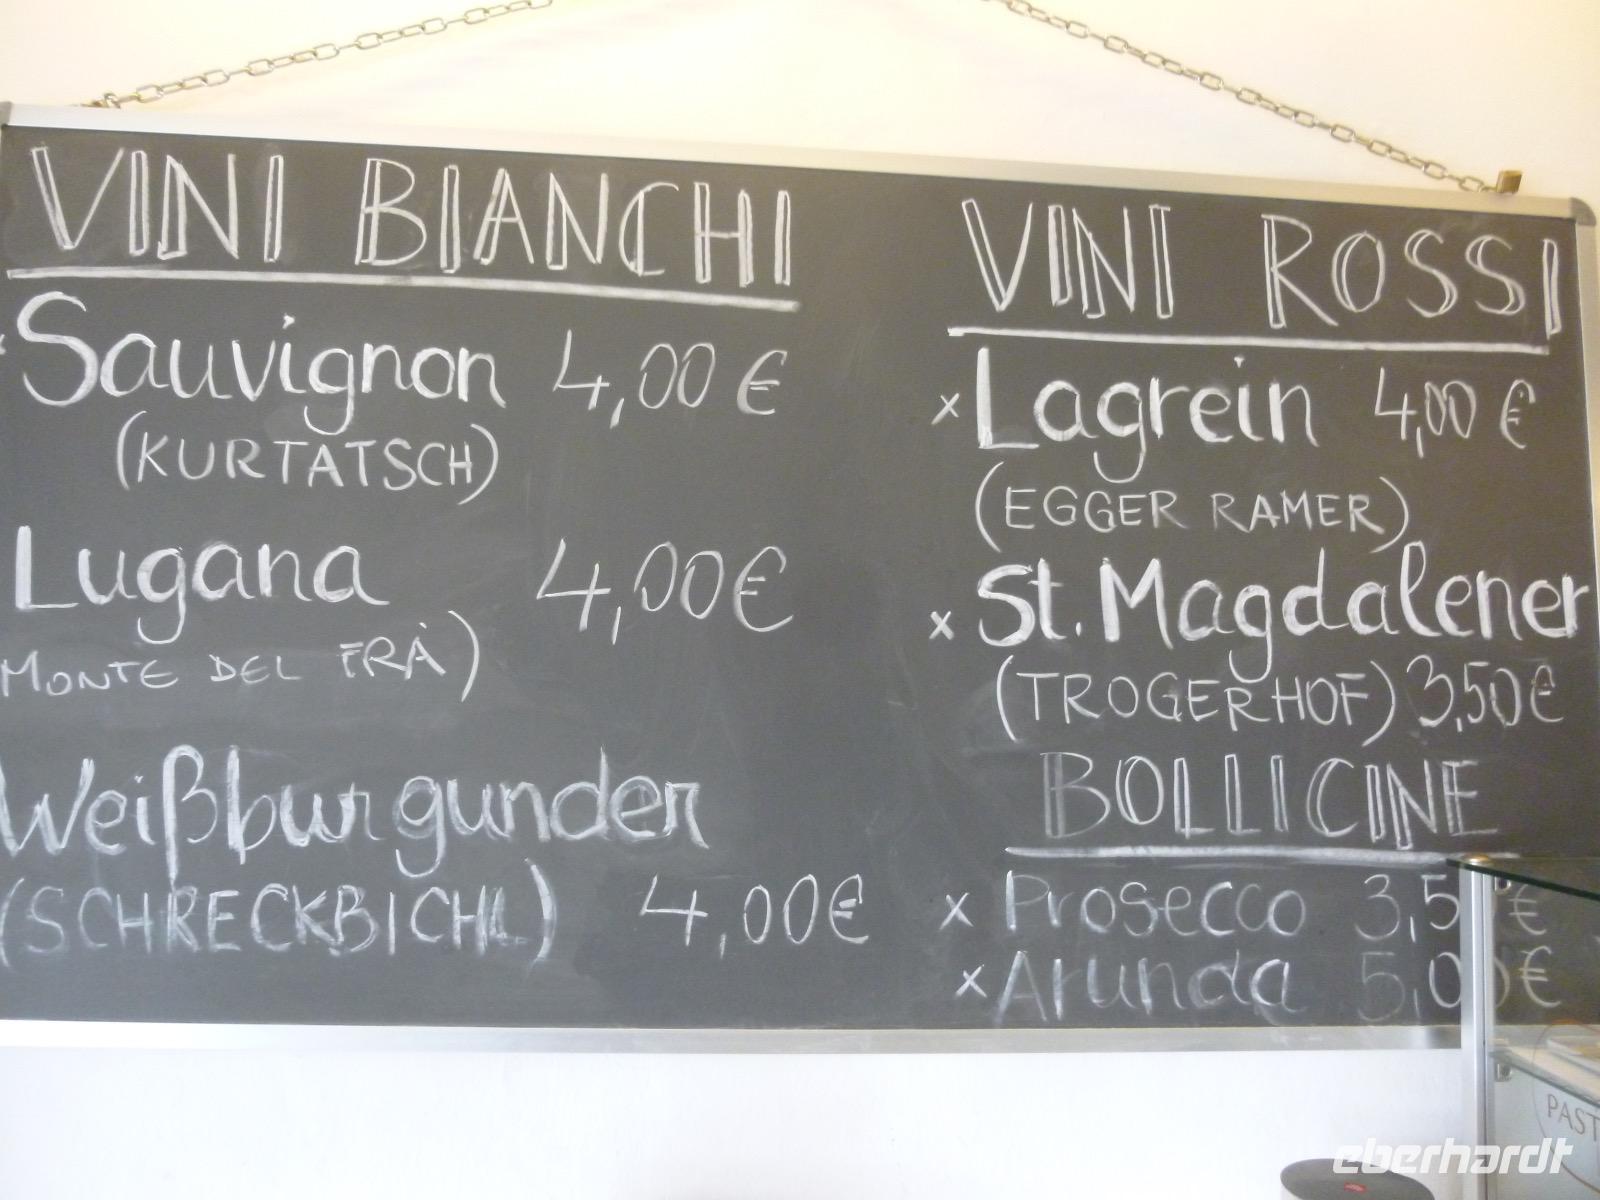 VINI BIANCHI
Sauvignon 4,00 €
(KURTATSCH)
Lugana 4,00 €
MONTE DEL FRÀ)
Weißburgunder
(SCHRECKBICHL) 4,00 €
VINI ROSSI
x Lagrein 4,00 €
(EGGER RAMER)
x St. Magdalener
(TROGERHOF) 3,50 €
BOLLICINE
x Prosecco 3,50 €
x Arunda 5,00 €
PAST
eberhardt